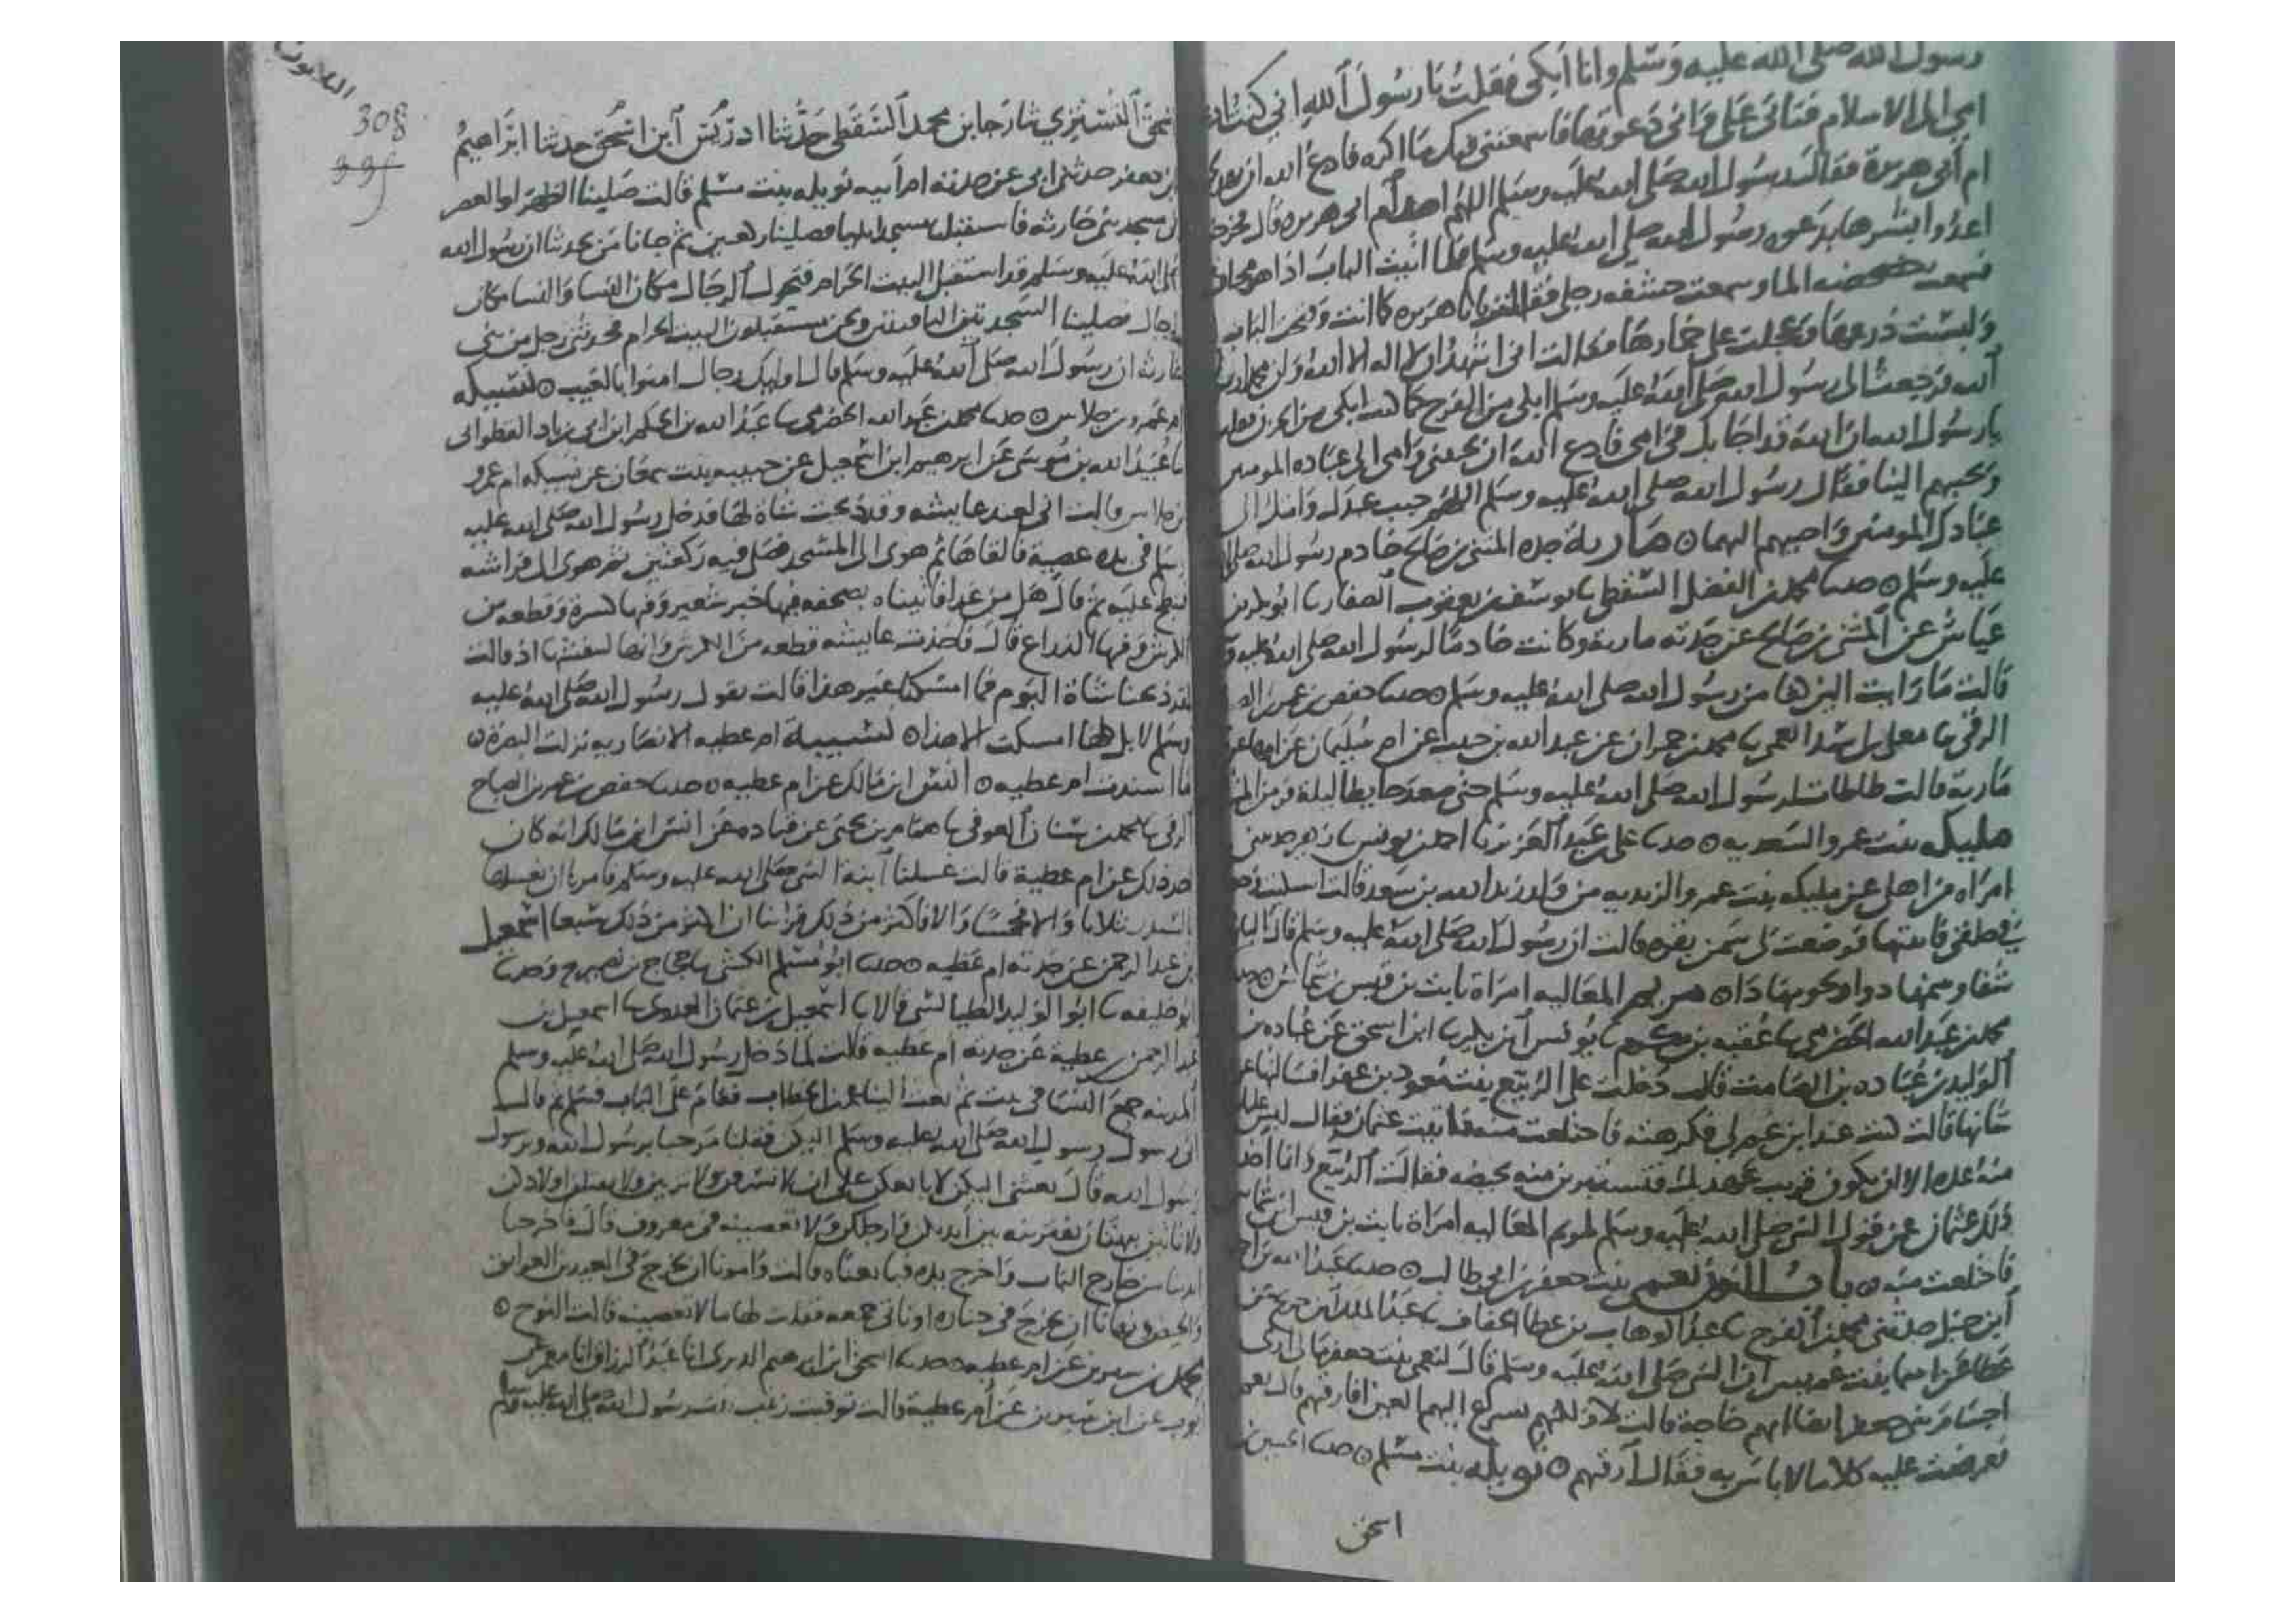 رسول الله صلى الله عليه وسلم وانا ابكى فقلت يا رسول الله انى كنت ادعو
امى الى الاسلام فتابى على وانى دعوتها فاسمعتنى فيك ما اكره فادع الله ان يهدى
ام ابى هريرة فقال رسول الله صلى الله عليه وسلم اللهم اهد ام ابى هريرة قال فخرجت
اعدوا ابشرها بدعوه رسول الله صلى الله عليه وسلم فلما اتيت الباب اذا هو مجاف
فسمعت خضخضه الما وسمعت خشفه رجلى فقالت يا ابا هريره كما انت وفتحت الباب
ولبست درعها وعجلت على خمارها فقالت انى اشهد ان لا اله الا الله وان محمدا رسول
الله فرجعت الى رسول الله صلى الله عليه وسلم ابكى من الفرح كما كنت ابكى من الحزن فقلت
يا رسول الله ان الله قد اجابك فى امى فادع الله ان يحببنى وامى الى عباده المومنين
ويحببهم الينا فقال رسول الله صلى الله عليه وسلم اللهم حبب عبدك وامه الى
عبادك المومنين واحببهم اليهما ۝ مارية جده المثنى بن صالح خادم رسول الله صلى الله
عليه وسلم ۝ حدثنا محمد بن الفضل السقطى ثنا يوسف بن يعقوب الصفار ثنا ابو بكر بن
عياش عن المثنى بن صالح عن جدته مارية وكانت خادما لرسول الله صلى الله عليه
قالت ما رايت الين كفا من رسول الله صلى الله عليه وسلم ۝ حدثنا حفص بن عمر بن الصباح
الرقى ثنا معلى بن اسد العمى ثنا محمد بن حمران عن عبد الله بن حبيب عن ام سليمان عن امها عن
مارية قالت طاطات لرسول الله صلى الله عليه وسلم حتى صعد حايطا ليلة فر من المشركين
مليكه بنت عمرو السعديه ۝ حدثنا على بن عبد العزيز ثنا احمد بن يونس ثنا زهير حدثتنى
امراه من اهلى عن مليكه بنت عمرو الزيديه من ولد زيد الله بن سعد قالت اشتكيت وجعا
فى حلقى فاتيتها فوضعت لى سمن بقره قالت ان رسول الله صلى الله عليه وسلم قال البانها
شفا وسمنها دوا ولحومها دا ۝ مريم المغاليه امراة ثابت بن قيس بن شماس ۝ حدثنا
محمد بن عبد الله الحضرمى ثنا عقبه بن مكرم ثنا يونس ابن بكير ثنا ابن اسحق عن عباده بن
الوليد بن عباده بن الصامت قال دخلت على الربيع بنت معوذ بن عفرا فسالتها عن
شانها قالت كنت عند ابن عم لى فكرهته فاختلعت منه فاتيت عثمان فقال ليس عليك
منه عده الا ان يكون قريب عهد بك فتستبرين منه بحيضه فقالت الربيع وانما اخذ
ذلك عثمان عن قول النبى صلى الله عليه وسلم لمريم المغاليه امراة ثابت بن قيس ابن شماس
فاختلعت منه ۝ باب النون نعمى بنت جعفر بن ابى طالب ۝ حدثنا عبد الله بن احمد
ابن حنبل حدثنى محمد بن الفرج ثنا عبد الوهاب بن عطا الخفاف ثنا عبد الملك ابن جريج عن
عطا عن اسما بنت عميس ان النبى صلى الله عليه وسلم قال لنعمى بنت جعفر ما لى ارى
اجسام بنى جعفر انضا ابهم حاجة قالت لا ولكنهم تسرع اليهم العين افارقيهم قال نعم
فعرضت عليه كلاما لا باس به فقال ارقيهم ۝ نويله بنت مسلم ۝ حدثنا الحسين بن
اسحق
الثلاثون
308
اسحق التسترى ثنا رجا بن محمد السقطى حدثنا ادريس ابن اسحق حدثنا ابراهيم
بن جعفر حدثنى ابى عن جدته ام ابيه نويله بنت مسلم قالت صلينا الظهر او العصر
فى مسجد بنى حارثه فاستقبلنا مسجد ايليا فصلينا ركعتين ثم جانا من يحدثنا ان رسول الله
صلى الله عليه وسلم قد استقبل البيت الحرام فتحول الرجال مكان النسا والنسا مكان
الرجال فصلينا السجدتين الباقيتين ونحن مستقبلون البيت الحرام فحدثنى رجل من بنى
حارثه ان رسول الله صلى الله عليه وسلم قال اوليك رجال امنوا بالغيب ۝ نسيكه
ام عمرو بن خلاس ۝ حدثنا محمد بن عبد الله الحضرمى ثنا عبد الله بن الحكم ابن ابى زياد القطوانى
ثنا عبيد الله بن موسى عن ابرهيم ابن اسمعيل عن حبيبه بنت سمعان عن نسيكه ام عمرو
بن خلاس قالت انى لعند عايشه وقد ذبحت شاة لها فدخل رسول الله صلى الله عليه
وسلم فى يده عصية فالقاها ثم هوى الى المسجد فصلى فيه ركعتين ثم هوى الى فراشه
فانبطح عليه ثم قال هل من غدا فاتيناه بصحفه فيها خبز شعير وفيها كسرة وقطعه من
الكرش وفيها الذراع قال فاخذت عايشه قطعه من الكرش وانها لتنهشها اذ قالت
لقد ذبحنا شاة اليوم فما امسكنا غير هذا قالت يقول رسول الله صلى الله عليه
وسلم لا بل كلها امسكت الا هذا ۝ نسيبة ام عطيه الانصاريه نزلت البصرة ۝
ما اسندت ام عطيه ۝ انس ابن مالك عن ام عطيه ۝ حدثنا حفص بن عمر بن الصباح
الرقى ثنا محمد بن سنان العوقى ثنا همام بن يحيى عن قتاده عن انس ابن مالك انه كان
اخذ ذلك عن ام عطية قالت غسلنا ابنة النبى صلى الله عليه وسلم فامرنا ان نغسلها
بالسدر ثلاثا والا فخمسا والا فاكثر من ذلك فراينا ان اكثر من ذلك سبعا اسمعيل
بن عبد الرحمن عن جدته ام عطيه ۝ حدثنا ابو مسلم الكشى ثنا حجاج بن نصير ح وحدثنا
ابو خليفه ثنا ابو الوليد الطيالسى قالا ثنا اسمعيل بن عثمان العبدى ثنا اسمعيل بن
عبد الرحمن بن عطية عن جدته ام عطيه قالت لما دخل رسول الله صلى الله عليه وسلم
المدينه جمع النسا فى بيت ثم بعث الينا عمر بن الخطاب فقام على الباب فسلم ثم قال
انى رسول رسول الله صلى الله عليه وسلم اليكن فقلنا مرحبا برسول الله وبرسول
رسول الله قال بعثنى اليكن لابايعكن على ان لا تسرقن ولا تزنين ولا تقتلن اولادكن
ولا تاتين ببهتان تفترينه بين ايديكن وارجلكن ولا تعصينه فى معروف قال فاخرجنا
ايدينا من خارج الباب واخرج يده فبايعناه قالت وامرنا ان نخرج فى العيدين العواتق
والحيض ونهانا ان نخرج فى جنازه او ناتى جمعه فقلت لها ما لا تعصينه قالت النوح ۝
محمد بن سيرين عن ام عطيه ۝ حدثنا اسحق ابن ابراهيم الدبرى انا عبد الرزاق انا معمر عن
ايوب عن ابن سيرين عن ام عطية قالت توفيت زينب بنت رسول الله صلى الله عليه وسلم